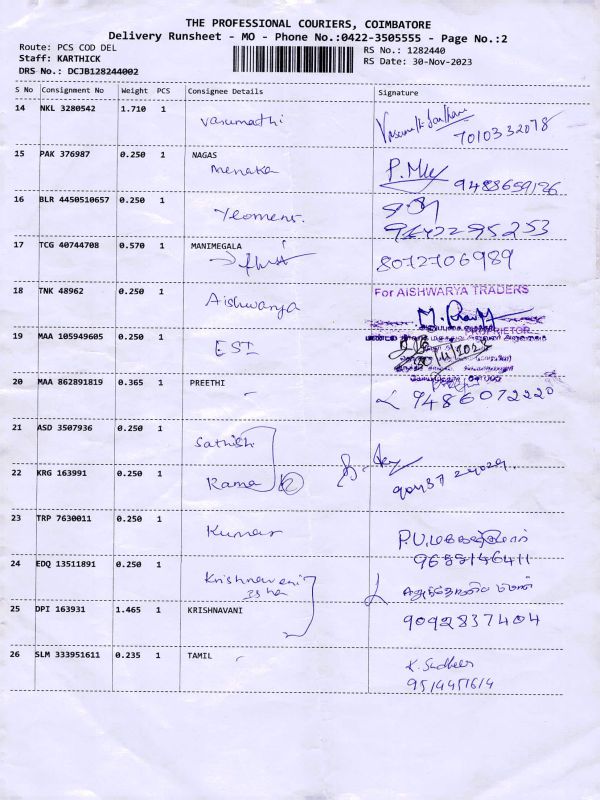 THE PROFESSIONAL COURIERS, COIMBATORE
Delivery Runsheet - MO - Phone No.:0422-3505555 - Page No.:2
Route: PCS COD DEL
Staff: KARTHICK
DRS No.: DCJB128244002
RS No.: 1282440
RS Date: 30-Nov-2023
S No Consignment No Weight PCS Consignee Details Signature
14 NKL 3280542 1.710 1 Vasumathi
7010332078
15 PAK 376987 0.250 1 NAGAS
Menaka
9488659126
16 BLR 4450510657 0.250 1 Yeomens.
9442295253
17 TCG 40744708 0.570 1 MANIMEGALA
8072706989
18 TNK 48962 0.250 1 Aishwarya
For AISHWARYA TRADERS
PROPRIETOR
19 MAA 105949605 0.250 1 ESI
30/11/2023
20 MAA 862891819 0.365 1 PREETHI
9486072220
21 ASD 3507936 0.250 1 Sathish
22 KRG 163991 0.250 1 Rama
23 TRP 7630011 0.250 1 Kumar
9688146411
24 EDQ 13511891 0.250 1 Krishnaveni
25 DPI 163931 1.465 1 KRISHNAVANI
9092837404
26 SLM 333951611 0.235 1 TAMIL
K. Sudheer
9514451614